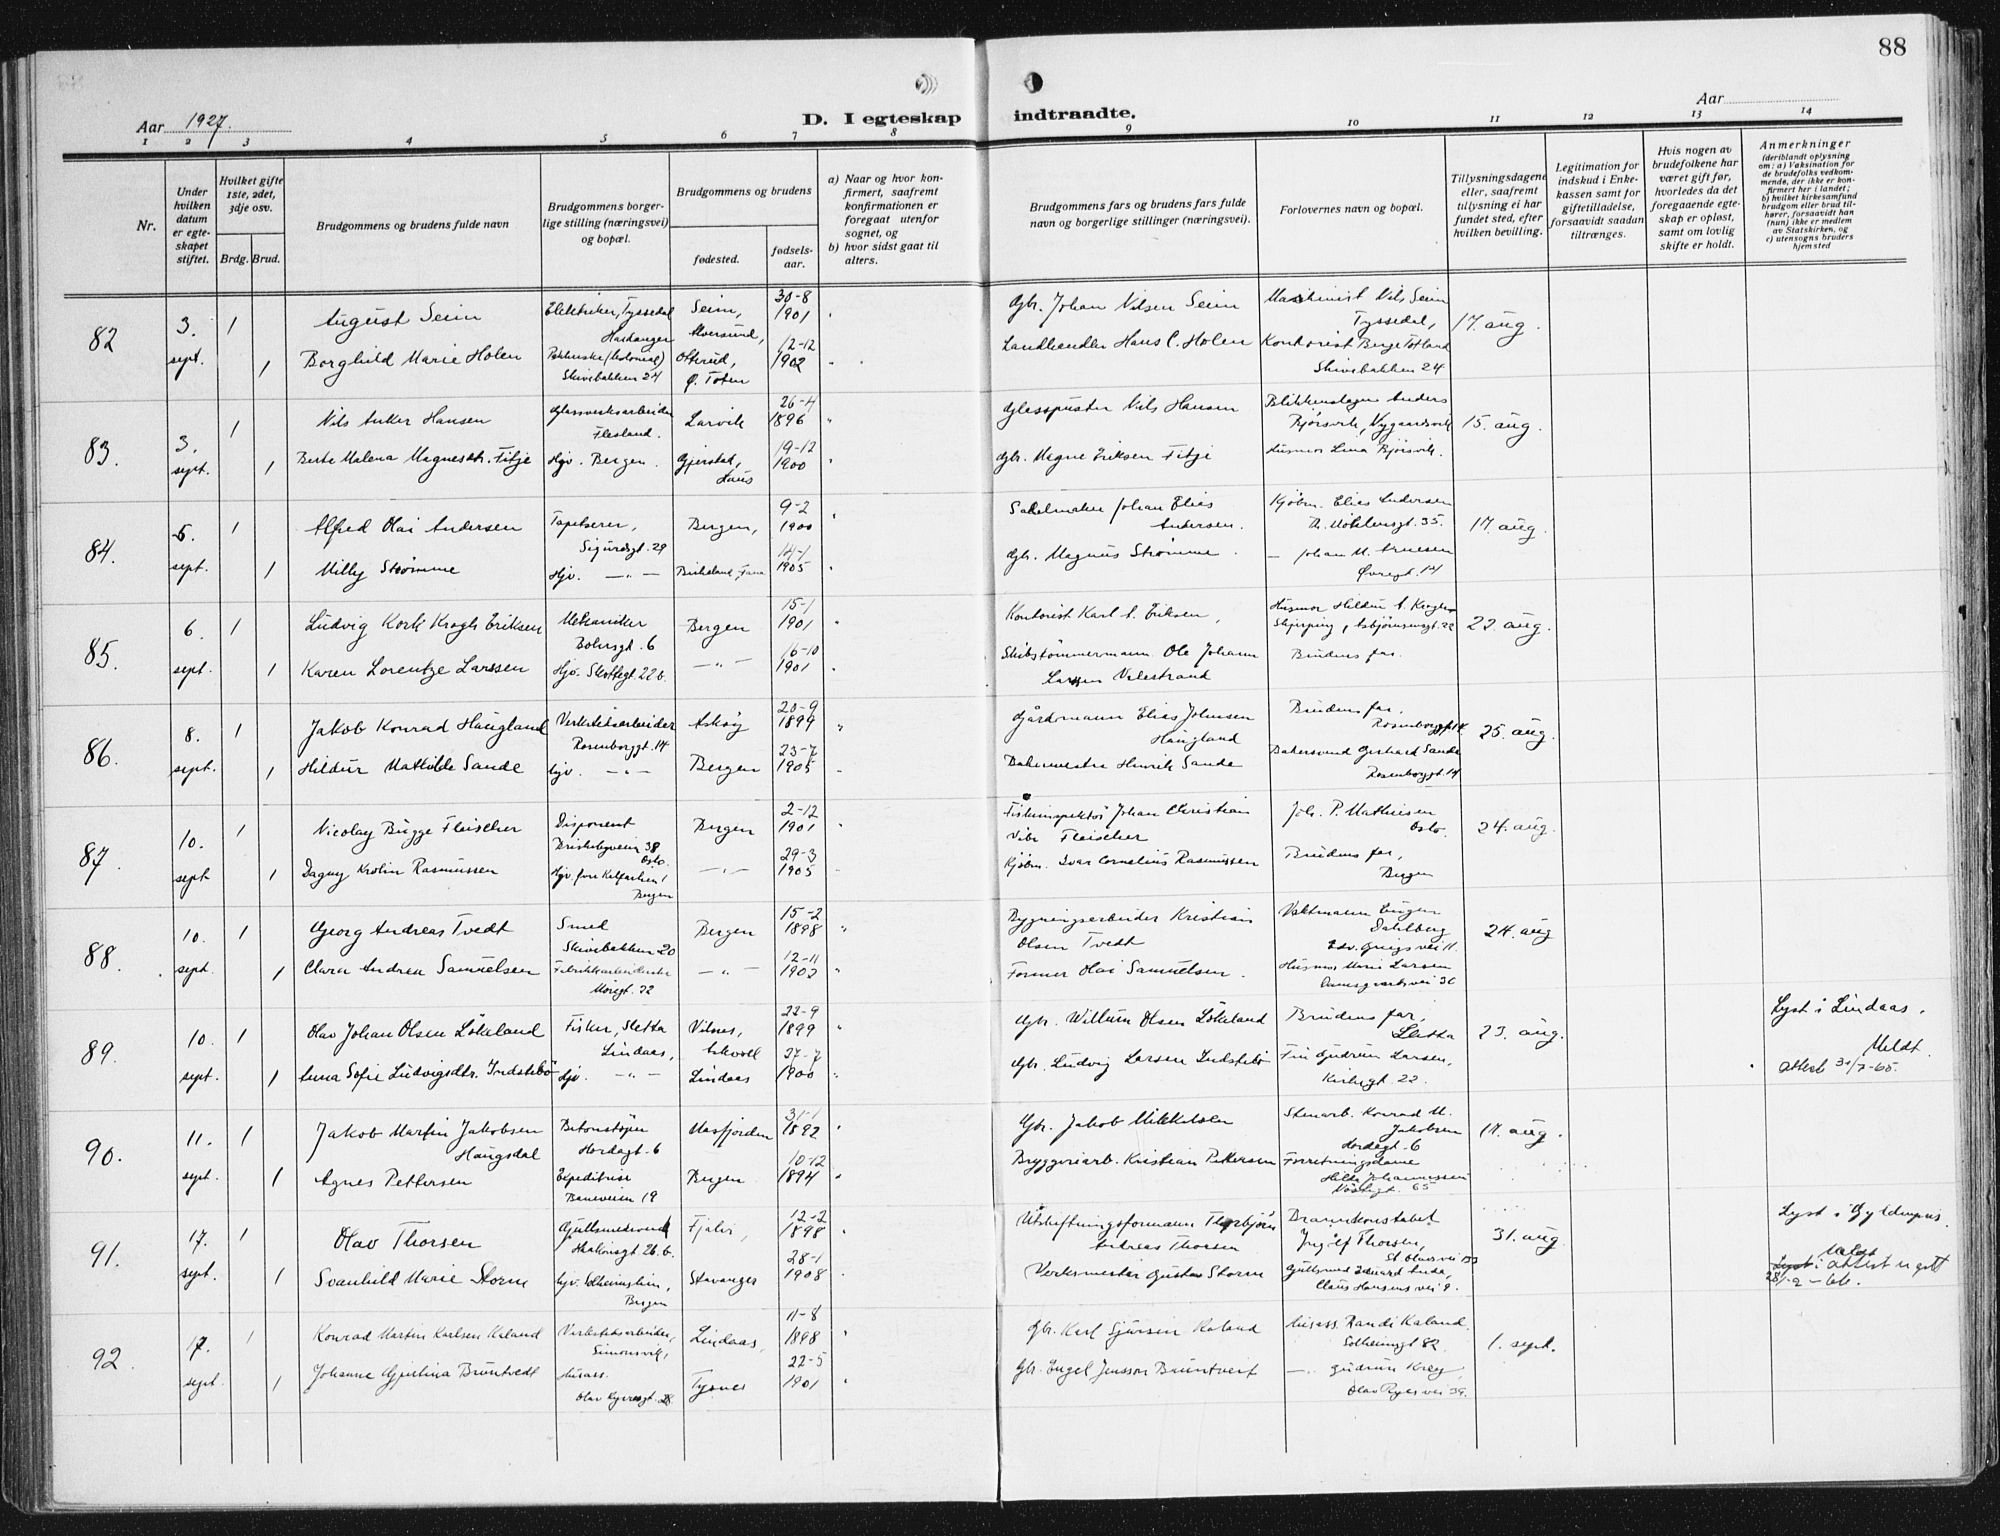 88
Aar 1927.
D. I egteskap indtraadte.
Aar
1 2 3 4 5 6 7 8 9 10 11 12 13 14
Nr.
Under hvilken datum er egteskapet stiftet.
Hvilket gifte 1ste, 2det, 3dje osv.
Brdg. Brud.
Brudgommens og brudens fulde navn
Brudgommens borgerlige stilling (næringsvei) og bopæl.
Brudgommens og brudens
fødested.
fødselsaar.
a) Naar og hvor konfirmert, saafremt konfirmationen er foregaat utenfor sognet, og
b) hvor sidst gaat til alters.
Brudgommens fars og brudens fars fulde navn og borgerlige stillinger (næringsvei).
Forlovernes navn og bopæl.
Tillysningsdagene eller, saafremt tillysning ei har fundet sted, efter hvilken bevilling.
Legitimation for indskud i Enkekassen samt for giftetilladelse, forsaavidt saadan tiltrænges.
Hvis nogen av brudefolkene har været gift før, hvorledes da det foregaaende egteskap er opløst, samt om lovlig skifte er holdt.
Anmerkninger
(deriblandt oplysning om: a) Vaksination for de brudefolks vedkommende, der ikke er konfirmert her i landet; b) hvilket kirkesamfund brudgom eller brud tilhører, forsaavidt han (hun) ikke er medlem av Statskirken, og c) utensogns bruders hjemsted
82 3. sept. 1 August Seim Elektriker, Tyssedal Hardanger Seim, Alversund, 30-8 1901 Gbr. Johan Nilsen Seim Maskinist Nils Seim Tyssedal, 17. aug.
1 Borghild Marie Holen Skivebakken 24 Ø. Toten 12-12 1902 Landhandler Hans C. Holen Kontorist Berge Totland Skivebakken 24
83. 3. sept. 1 Nils Anker Hansen Glassverksarbeider Flesland. Larvik 26-4 1896 Glasspuster Nils Hansen Blikkenslager Anders Bjørsvik, Nygaardsvik 15. aug.
1 Berte Malena Magnesdtr. Fitje Hjv. Bergen. Gjerstad, Haus 19-12 1900 Gbr. Magne Eriksen Fitje Husmor Lina Bjørsvik.
84. 5. sept. 1 Alfred Olai Andersen Tapetserer, Sigurdsgt. 29 Bergen, 9-2 1900 Salelmaker Johan Elias Andersen. Kjøbm. Elias Andersen 35. 17. aug.
1 Milly Strømme Hjv. —„— Birkeland, Fana 14-1 1905 Gbr. Magnus Strømme. — Johan M. Øvregt. 14
85. 6. sept. 1 Ludvig Kork Krogh Eriksen Mekaniker Bøhrsgt. 6 Bergen 15-1 1901 Kontorist Karl A. Eriksen, Husmor Hildur A. Krogh Skjerping, Asbjørnsensgt. 22 22. aug.
1 Karen Lorentze Larssen Hjv. Slottsgt. 22 b. —„— 16-10 1901 Skibstømmermann Ole Johann Larssen Valestrand Brudens far.
86. 8. sept. 1 Jakob Konrad Haugland Verkstedsarbeider Rosenborggt. 14 Askøy 20-9 1899 Gårdmann Elias Johnsen Haugland Brudens far, Rosenborggt. 14 25. aug.
1 Hildur Mathilde Sande Hjv. —„— Bergen 23-7 1905 Bakermester Henrik Sande Bakersvend Gerhard Sande Rosenborggt. 14
87. 10. sept 1 Nicolay Bugge Fleischer Disponent Briskebyveien 38 Oslo. Bergen 2-12 1901 Fiskeinspektør Johan Christian Vibe Fleischer Joh. P. Mathiesen Oslo. 24. aug.
1 Dagny Kolin Rasmussen Hjv. Kalfarlien 1 Bergen —„— 29-3 1905 Kjøbm. Ivar Cornelius Rasmussen Brudens far, Bergen
88. 10. sept. 1 Georg Andreas Tvedt Smed Skivebakken 20 Bergen 15-2 1898 Bygningsarbeider Kristian Olsen Tvedt Vaktmann Eugen Dahlberg Edv. Griegs vei 11. 24. aug
1 Clara Andrea Samuelsen Fabrikkarbeiderske 22 —„— 12-11 1902 Former Olai Samuelsen. Husmor Marie Larsen Damsgaardsvei 36
89. 10. sept. 1 Olav Johan Olsen Løkeland Fisker, Sletta Lindaas, Vilnes, Askvoll 22-9 1899 Gbr. Willum Olsen Løkeland Brudens far, Sletta 23. aug. Lyst i Lindaas.
1 Anna Sofie Ludvigsdtr. Indstebø Hjv. —„— Lindaas 27-7 1900 Gbr. Ludvig Larsen Indstebø Gudrun Larsen, Kirkegt. 22. Meldt. attest 30/7-65.
90. 11. sept. 1 Jakob Martin Jakobsen Haugsdal Betonstøper Hordagt. 6 Masfjorden 31-1 1892 Gbr. Jakob Mikkelsen Stenarb. Konrad M. Jakobsen Hordagt. 6 17. aug.
1 Agnes Pettersen Expeditrise Baneveien 19 Bergen 10-12 1894 Bryggeriarb. Kristian Pettersen Forretningsdame Hilda Johannessen 65
91. 17. sept. 1 Olav Thorsen Gullsmedsvend Haakonsgt 26 b. Fjaler, 12-2 1898 Utskiftningsformann Thorbjørn Andreas Thorsen Brannkonstabel Ingolf Thorsen, St. Olavs vei 31. aug. Lyst i Gyldenpris.
1 Svanhild Marie Storm Hjv. Solheimslien, Bergen Stavanger 28-1 1908 Verksmester Gustav Storm Gullsmed Edvard Claus Hansens vei 9. Meldt attest 28/2-66.
92 17. sept. 1 Konrad Martin Karlsen Kaland Verkstedsarbeider, Simonsvik, Lindaas, 11-8 1898 Gbr. Karl Sjursen Kaland Husass. Randi Kaland. Solheimsgt 82. 1. sept.
1 Johanne Gjertina Bruntvedt Husass. Olav Kyrresgt. 28. Tysnes 22-5 1901 Gbr. Engel Jensson Bruntveit —„— Gudrun Olav Ryes vei 39.